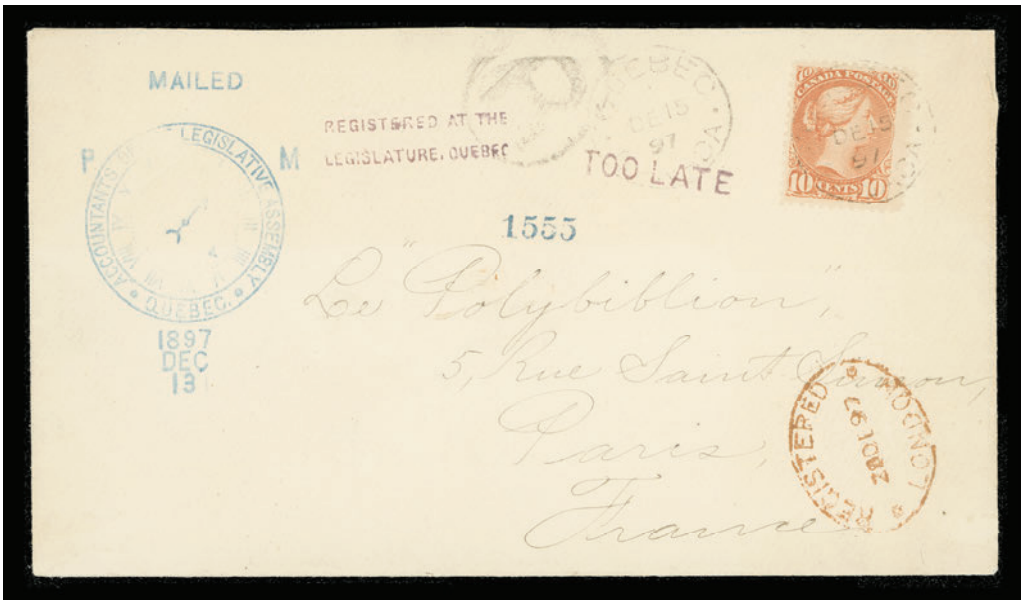 MAILED
P M
ACCOUNTANTS LEGISLATIVE ASSEMBLY
QUEBEC.
1897
DEC
13
REGISTERED AT THE
LEGISLATURE, QUEBEC
DE 15
97
TOO LATE
CANADA POSTAGE
10 CENTS 10
DE 15
97
1555
Le "Polybiblion",
5, Rue Saint Simon,
Paris,
France
REGISTERED LONDON
97